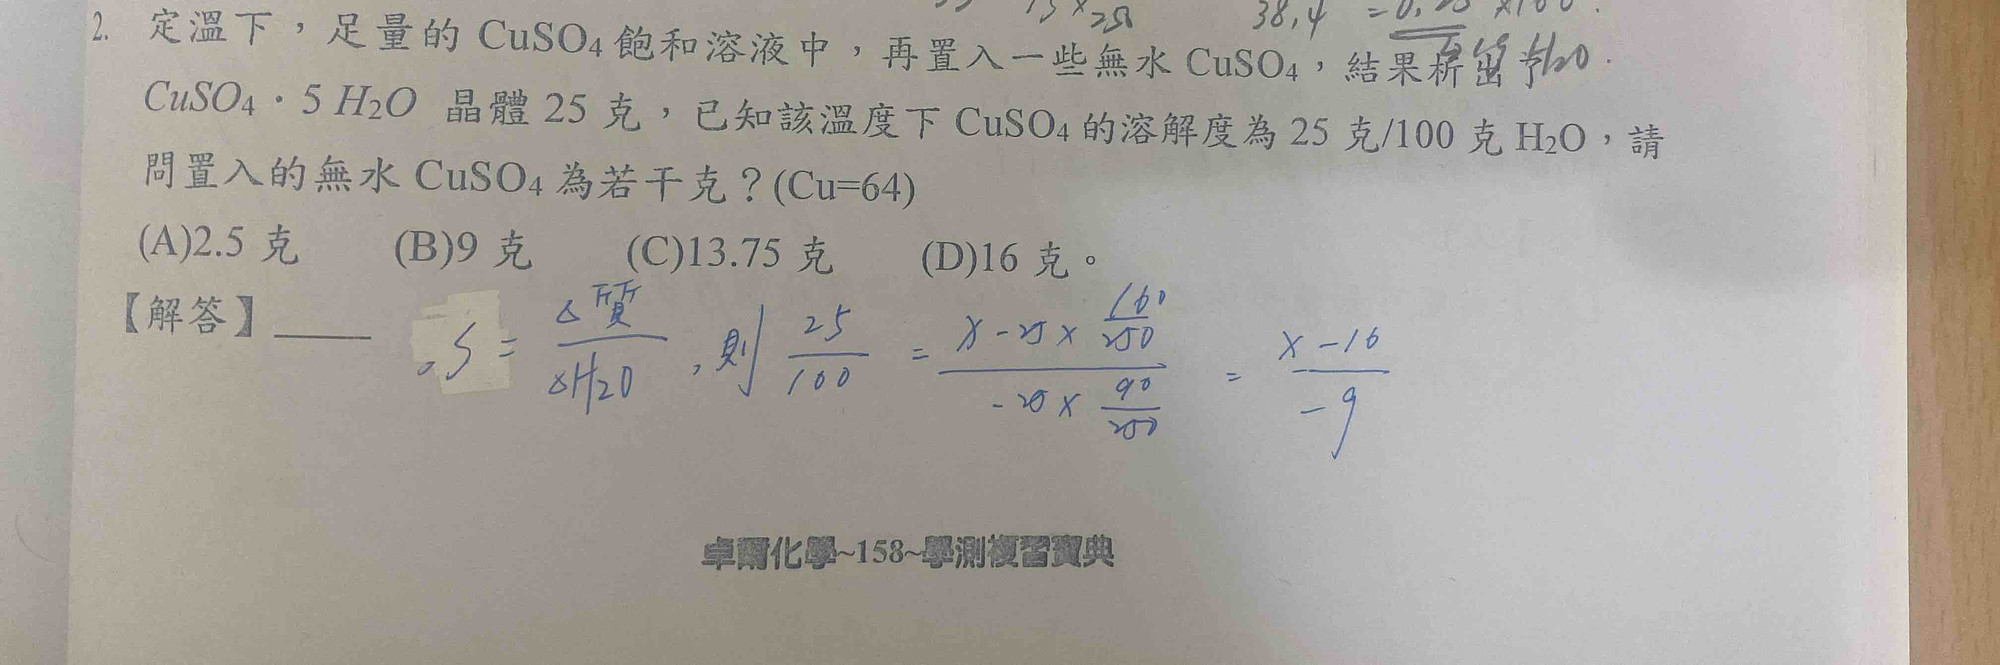 38.4
2. 定溫下，足量的 CuSO₄ 飽和溶液中，再置入一些無水 CuSO₄，結果析出
CuSO₄．5 H₂O 晶體 25 克，已知該溫度下 CuSO₄ 的溶解度為 25 克/100 克 H₂O，請
問置入的無水 CuSO₄ 為若干克？(Cu=64)
(A)2.5 克 (B)9 克 (C)13.75 克 (D)16 克。
【解答】____ S = Δ質/ΔH₂O , 則 25/100 = (x - 25 × 160/250)/(- 25 × 90/250) = (x - 16)/(-9)
卓爾化學~158~學測複習寶典